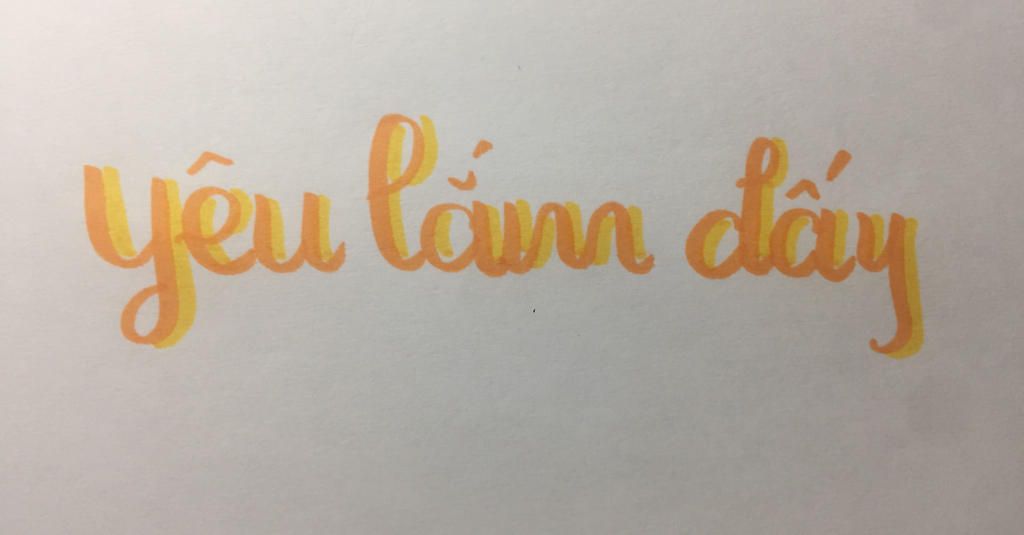 yêu lắm đấy